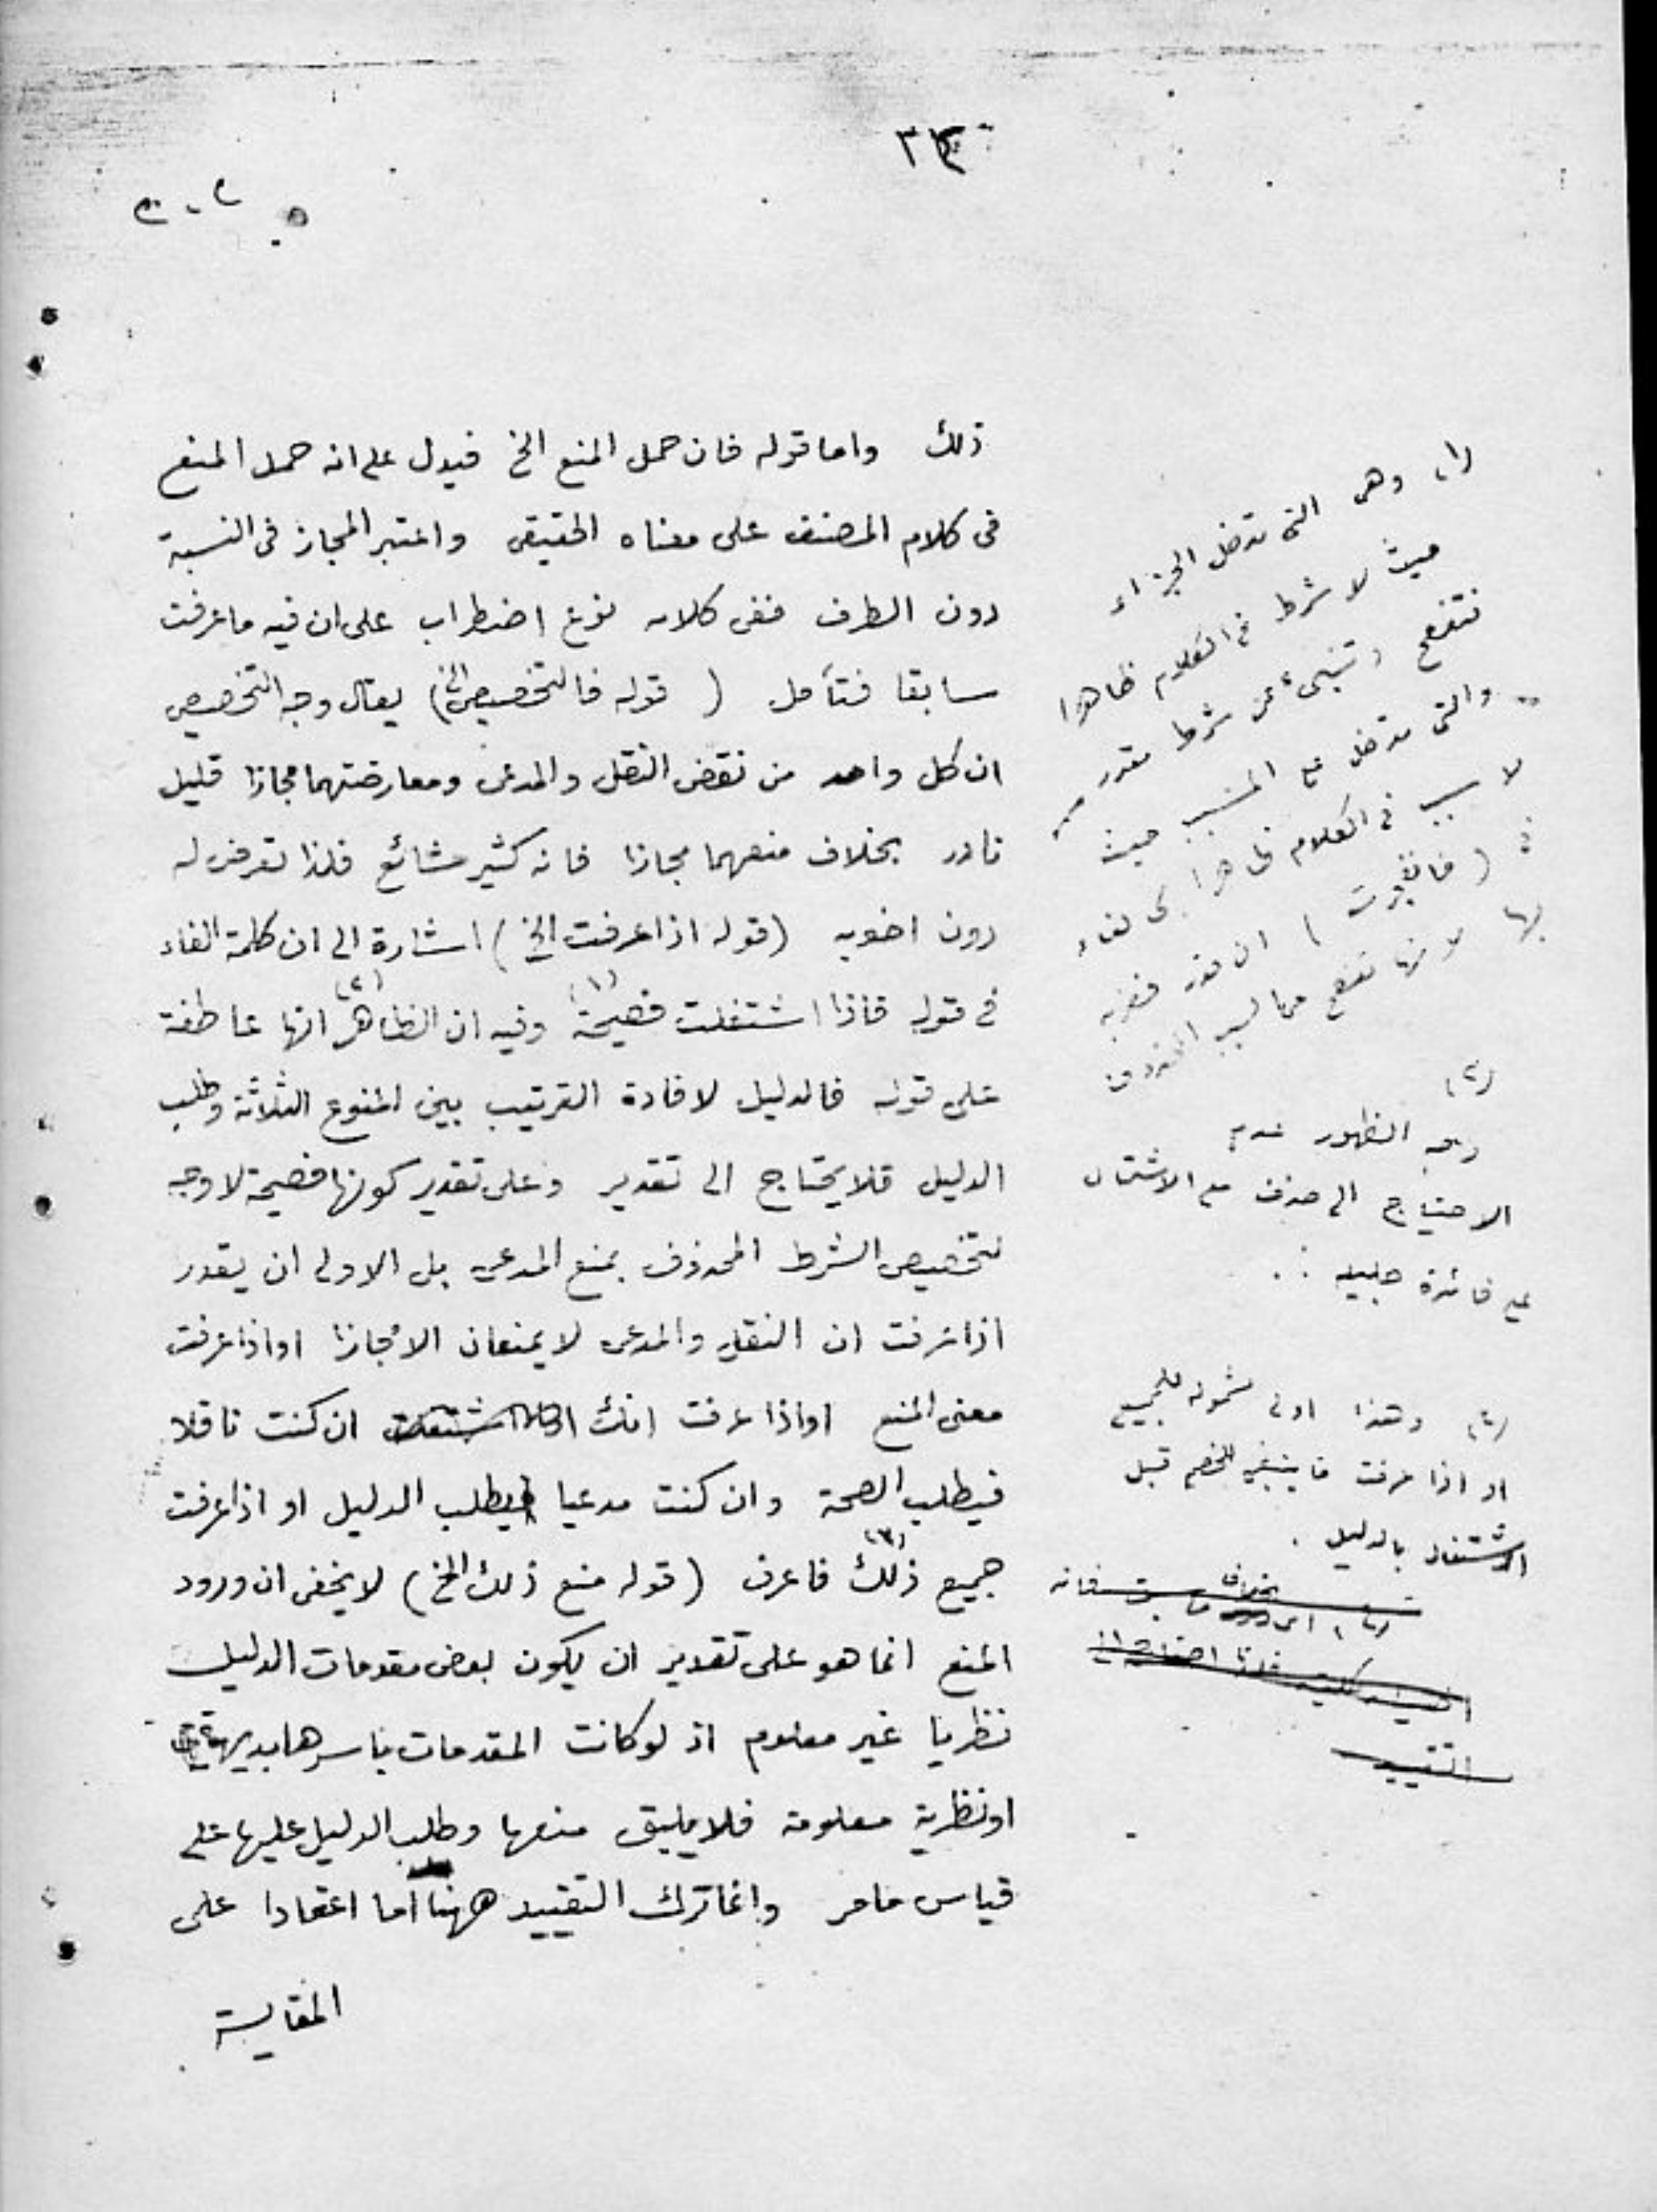 ذلك واما قوله فان حمل المنع الخ فيدل على انه حمل المنع
فى كلام المصنف على معناه الحقيقى واعتبر المجاز فى النسبة
دون الطرف ففى كلامه نوع اضطراب على ان فيه ما عرفت
سابقا فتأمل ( قوله فالتخصيص الخ) يقال وجه التخصيص
ان كل واحد من نقض النقل والمدعى ومعارضتهما مجازا قليل
نادر بخلاف منعهما مجازا فانه كثير شائع فلذا تعرض له
دون اخويه (قوله اذا عرفت الخ) اشارة الى ان كلمة الفاء
فى قوله فاذا اشتغلت فصيحة (١) وفيه ان الظاهر (٢) انها عاطفة
على قوله فالدليل لافادة الترتيب بين المنوع الثلاثة وطلب
الدليل فلا يحتاج الى تقدير وعلى تقدير كونها فصيحة لا وجه
لتخصيص الشرط المحذوف بمنع المدعى بل الاولى ان يقدر
اذا عرفت ان النقل والمدعى لا يمنعان الا مجازا او اذا عرفت
معنى المنع او اذا عرفت انك ان كنت ناقلا
فيطلب الصحة وان كنت مدعيا يطلب الدليل او اذا عرفت
جميع ذلك (٣) فاعرف (قوله منع ذلك الخ) لا يخفى ان ورود
المنع انما هو على تقدير ان يكون بعض مقدمات الدليل
نظريا غير معلوم اذ لو كانت المقدمات باسرها بديهية
او نظرية معلومة فلا يليق منعها وطلب الدليل عليها على
قياس مامر وانما ترك التقييد ههنا اما اعتمادا على
المقايسة
(١) وهى التى تدخل الجزاء
حيث لا شرط فى الكلام ظاهرا
فتفصح وتنبىء عن شرط مقدر
والتى تدخل على المسبب حيث
لا سبب فى الكلام ظاهرا كالفاء
(فانفجرت) اى فضربه
بها لانها تفصح عما
(٢)
وجه الظهور عدم
الاحتياج الى حذف مع الاشتمال
على فائدة جليلة
(٣) وهذا اولى لشموله للجميع
او اذا عرفت ما ينبغى للخصم قبل
الاشتغال بالدليل .
التقييد